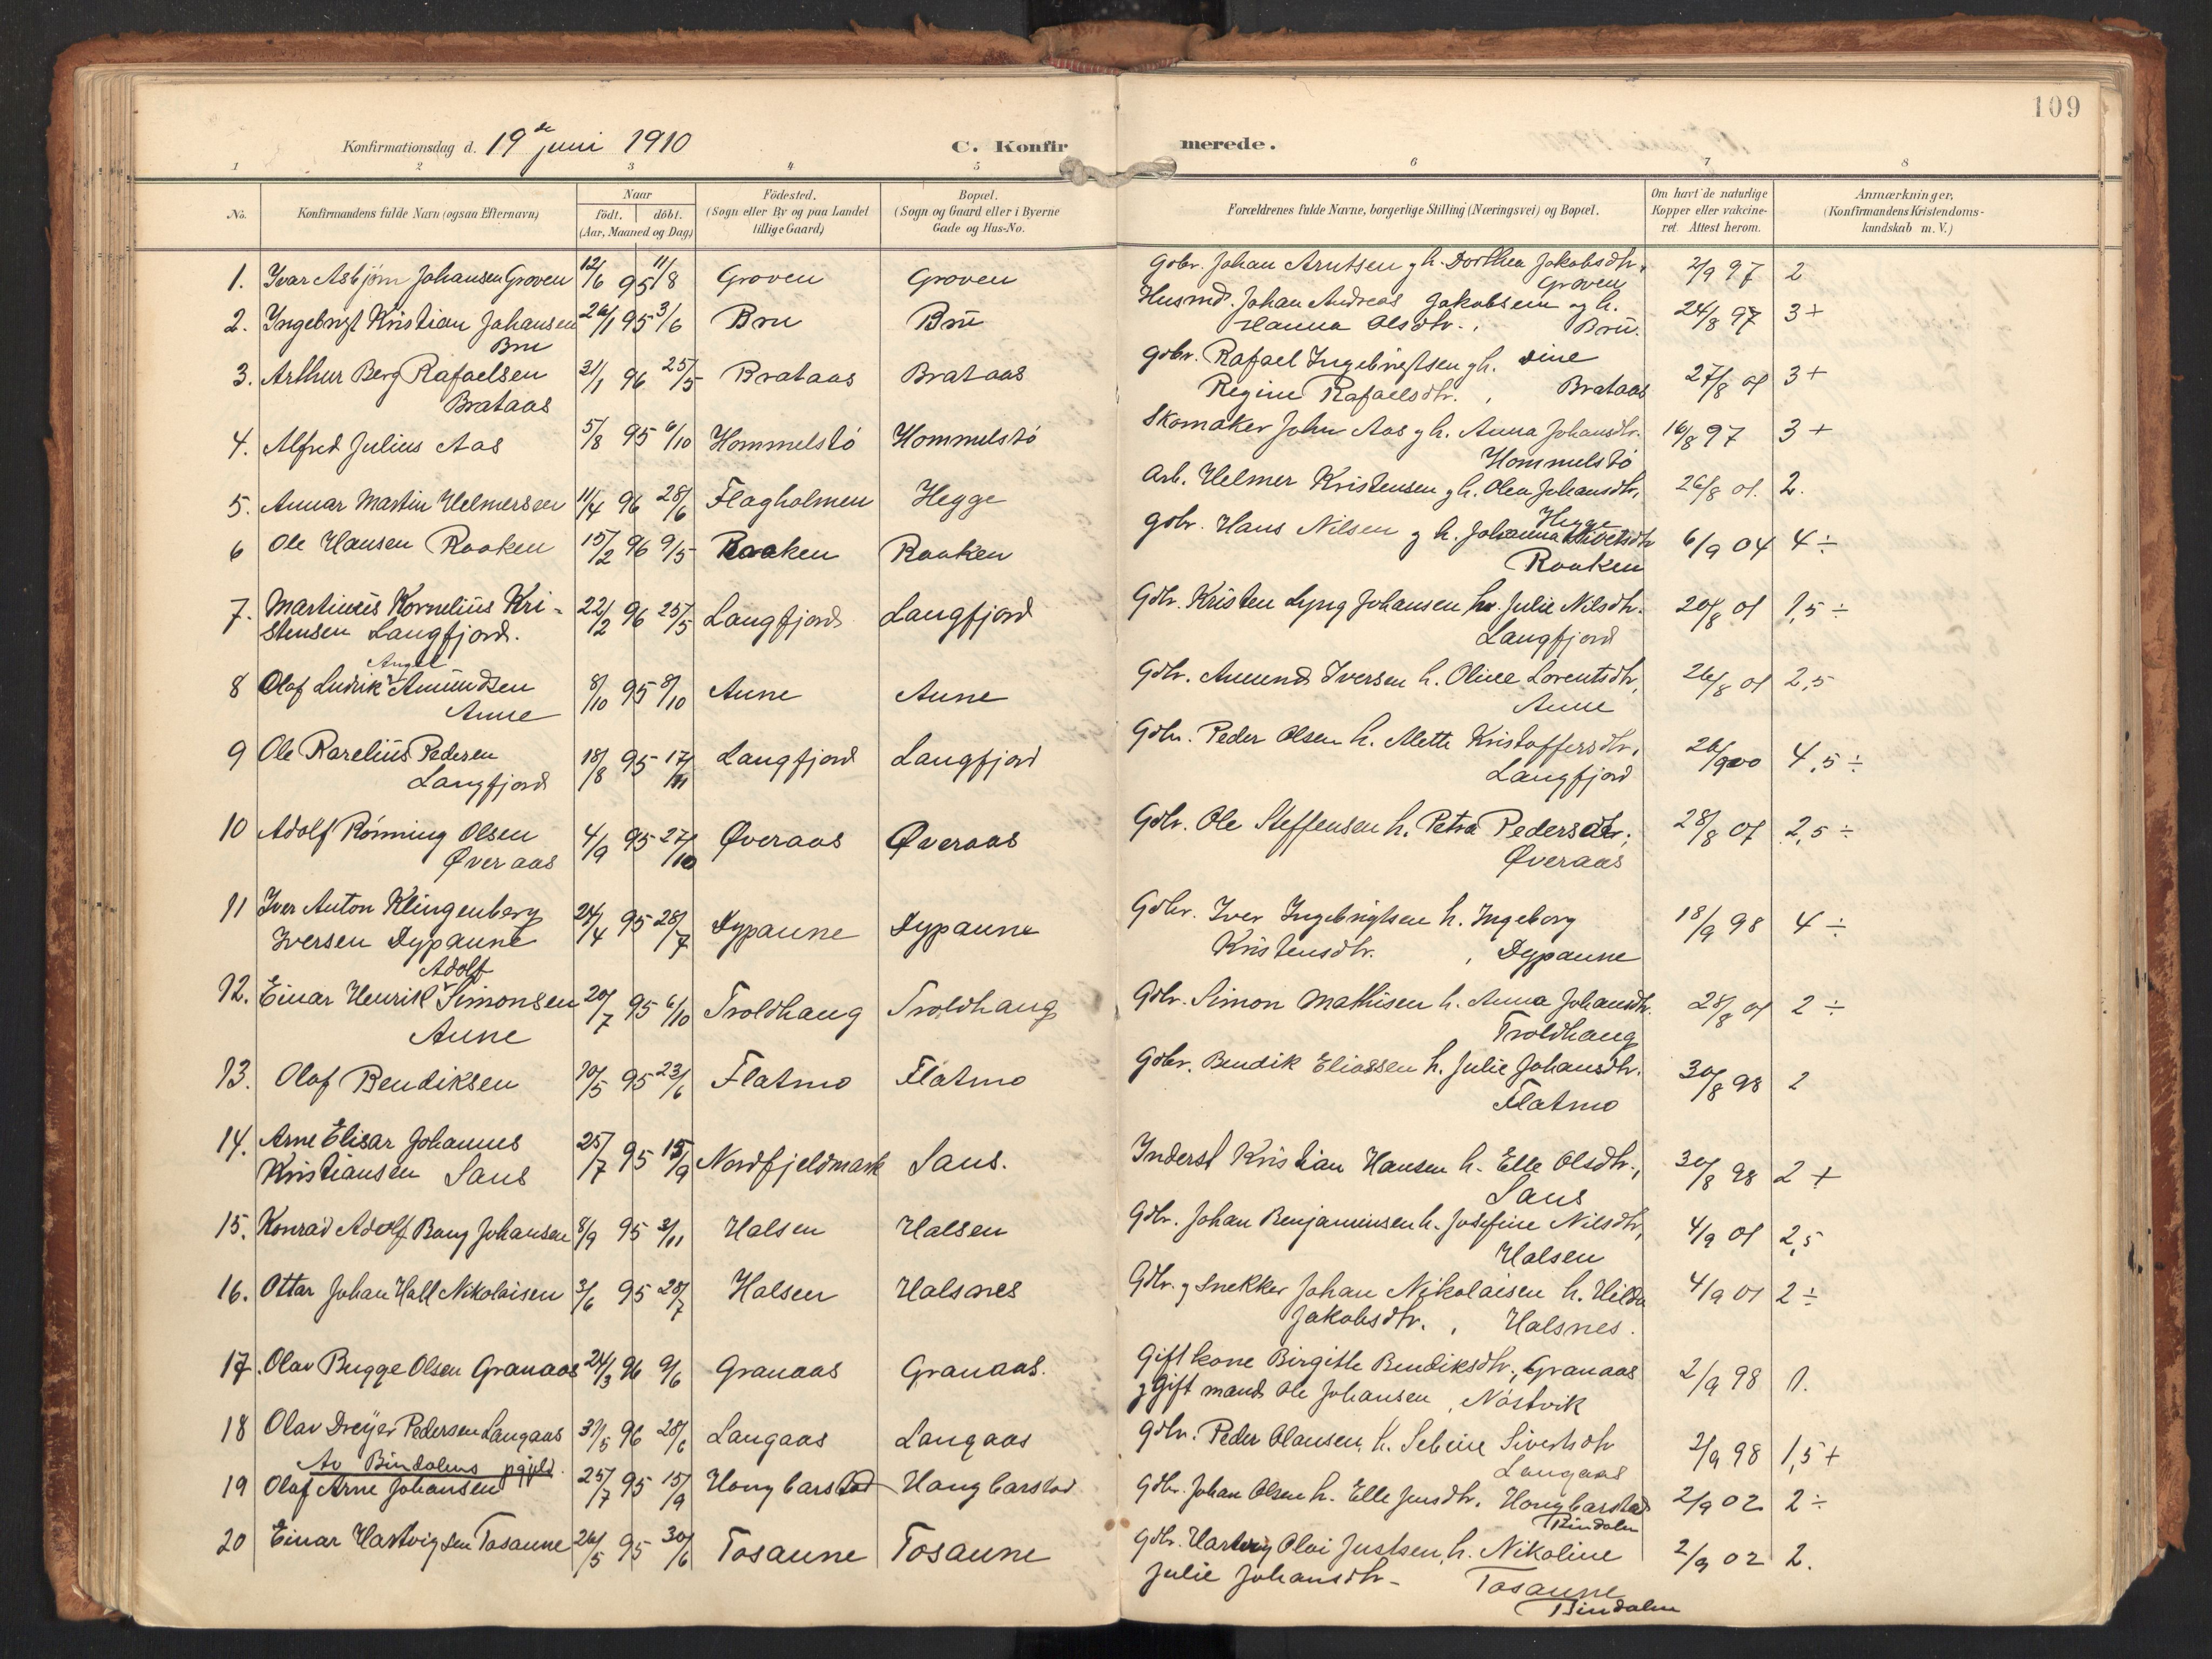 109
Konfirmationsdag d. 19de juni 1910 C. Konfirmerede.
1 2 3 4 5 6 7 8
No. Konfirmandens fulde Navn (ogsaa Efternavn) Naar født. døbt. (Aar, Maaned og Dag) Födested. (Sogn eller By og paa Landet tillige Gaard) Bopæl. (Sogn og Gaard eller i Byerne Gade og Hus-No. Forældrenes fulde Navne, borgerlige Stilling (Næringsvei) og Bopæl. Om havt de naturlige Kopper eller vakcineret. Attest herom. Anmærkninger, (Konfirmandens Kristendomskundskab m. V.)
1. Ivar Asbjørn Johansen Groven 12/6 95 11/8 Groven Groven Gdbr. Johan Arntsen g h. Dorthea Jakobsdtr. Groven 2/9 97 2
2. Ingebrigt Kristian Johansen Bru 26/1 95 3/6 Bru Brŭ Husmd. Johan Andreas Jakobsen og h. Hanna Olsdtr., Brŭ. 24/8 97 3+
3. Arthur Berg Rafaelsen Brataas 31/1 96 25/5 Brataas Brataas Gdbr. Rafael Ingebrigtsen g h. Regine Rafaelsdtr., Brataas 27/8 01 3+
4. Alfred Julius Aas 5/8 95 6/10 Hommelstö Hommelstö Skomaker John Aas g h. Anna Johansdtr. Hommelstö 16/8 97 3+
5. Annar Martin Helmersen 11/4 96 28/6 Flagholmen Hegge Arb. Helmer Kristensen g h. Olea Johansdtr, Hegge 26/8 01. 2.
6 Ole Hansen Raaken 15/2 96 9/5 Raaken Raaken gdbr. Hans Nilsen g h. Johanna Raaken 6/9 04 4÷
7. Martinŭs Kornelius Kristensen Langfjord. 22/2 96 25/5 Langfjord Langfjord Gdbr. Kristen Lyng Johansen h. Julie Nilsdtr. Langfjord 20/8 01 1,5÷
8 Olaf Ludvik Angel Amundsen Aune 8/10 95 8/10 Aune Aune Gdbr. Amund Iversen h. Oline Lorentsdtr, Aune 26/8 01 2,5
9 Ole Karelius Pedersen Langfjord 18/8 95 17/11 Langfjord Langfjord Gdbr. Peder Olsen h. Mette Kristoffersdtr. Langfjord 26/9 00 4,5÷
10 Adolf Rönning Olsen Øveraas 4/9 95 27/10 Øveraas Øveraas Gdbr. Ole Steffensen h. Petra Pedersdtr, Øveraas 28/8 07 2,5÷
11 Iver Anton Klingenberg Iversen Dypaune 24/4 95 28/7 Dypaune Dypaune Gdbr. Iver Ingebrigtsen h. Ingeborg Kristensdtr., Dypaune 18/9 98 4÷
12. Einar Henrik Adolf Simonsen Aune 20/7 95 6/10 Troldhaug Troldhaug Gdbr. Simon Mathisen h. Anna Johansdtr. Troldhaug 28/8 01 2÷
13. Olaf Bendiksen 10/5 95 23/6 Flatmo Flatmo Gdbr. Bendik Eliassen h. Julie Johansdtr. Flatmo 30/8 98 2
14. Arne Elisar Johannes Kristiansen Saus 25/7 95 15/9 Nordfjeldmark Saus. Inderst Kristian Hansen h. Elle Olsdtr., Saus 30/8 98 2+
15. Konrad Adolf Bang Johansen 8/9 95 3/11 Halsen Halsen Gdbr. Johan Benjaminsen h. Josefine Nilsdtr, Halsen 4/9 01 2,5
16. Ottar Johan Hall Nikolaisen 3/6 95 28/7 Halsen Halsnes Gdbr. g Snekker Johan Nikolaisen h. Hilda Jakobsdtr., Halsnes. 4/9 01 2÷
17. Olav Bugge Olsen Granaas 24/3 96 9/6 Granaas Granaas. Gift kone Birgitte Bendiksdtr., Granaas g Gift mand Ole Johansen, Nástvik 2/9 98 1.
18 Olav Dreÿer Pedersen Langaas 31/5 96 28/6 Langaas Langaas Gdbr. Peder Olausen, h. Sebine Sivertsdtr Langaas 2/9 98 1,5+
Av Bindalens pgjeld.
19 Olaf Arne Johansen 25/7 95 15/9 Hongbarstad Hongbarstad Gdbr. Johan Olsen h. Elle Jensdtr. Hongbarstad Bindalen 2/9 02 2÷
20 Einar Hartvigsen Tosaune 26/5 95 30/6 Tosaune Tosaune Gdbr. Hartvig Olai Justsen, h. Nikoline Julie Johansdtr- Tosaune Bindalen 2/9 02 2.